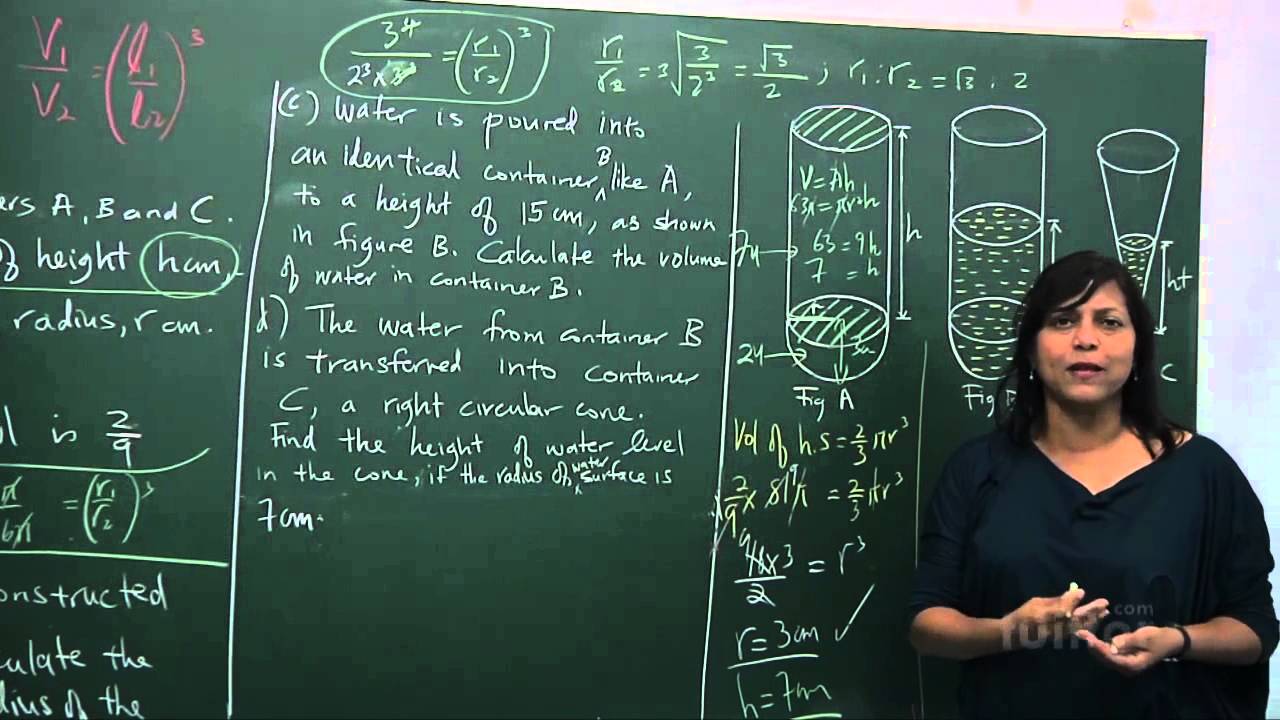 V₁/V₂ = (l₁/l₂)³
ers A, B and C.
of height h cm,
radius, r cm.
is 2/9
= (r₁/r₂)³
onstructed
culate the
dius of the
3⁴/2³×3³ = (r₁/r₂)³
r₁/r₂ = ³√3/2³ = √3/2 ; r₁ : r₂ = √3 : 2
(c) Water is poured into
an identical container B like A,
to a height of 15 cm, as shown
in figure B. Calculate the volume
of water in container B.
d) The water from container B
is transferred into container
C, a right circular cone.
Find the height of water level
in the cone, if the radius of water surface is
7cm.
V = Ah
63π = πr²h
63 = 9h
7 = h
7u
h
2u
3u
r
Fig A
Fig
ht
C
Vol of h.s = 2/3 πr³
2/9 × 81π = 2/3 πr³
= r³
r = 3cm ✓
h = 7cm
.com